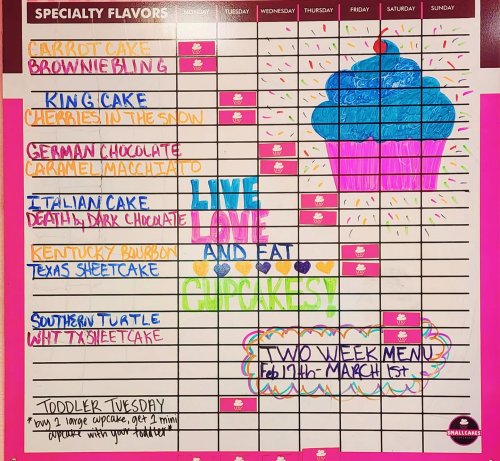 SPECIALTY FLAVORS MONDAY TUESDAY WEDNESDAY THURSDAY FRIDAY SATURDAY SUNDAY
CARROT CAKE
BROWNIE BLING
KING CAKE
CHERRIES IN THE SNOW
GERMAN CHOCOLATE
CARAMEL MACCHIATO
ITALIAN CAKE
DEATH by DARK CHOCOLATE
KENTUCKY BOURBON
TEXAS SHEETCAKE
SOUTHERN TURTLE
WHT TX SHEETCAKE
TODDLER TUESDAY
*buy 1 large cupcake, get 1 mini
cupcake with your toddler*
LIVE
LOVE
AND EAT
CUPCAKES!
TWO WEEK MENU
Feb 17th - MARCH 1st
SMALLCAKES